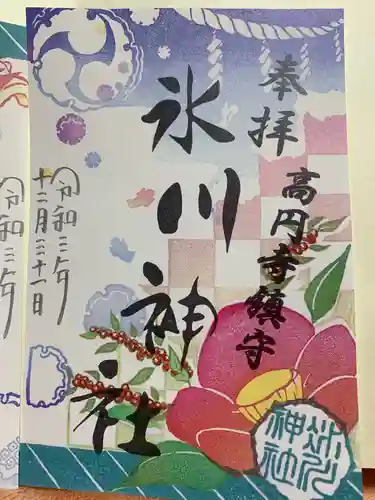 奉拝
高円寺鎮守
氷川神社
令和三年
十二月三十一日
氷川
神社
令和三年